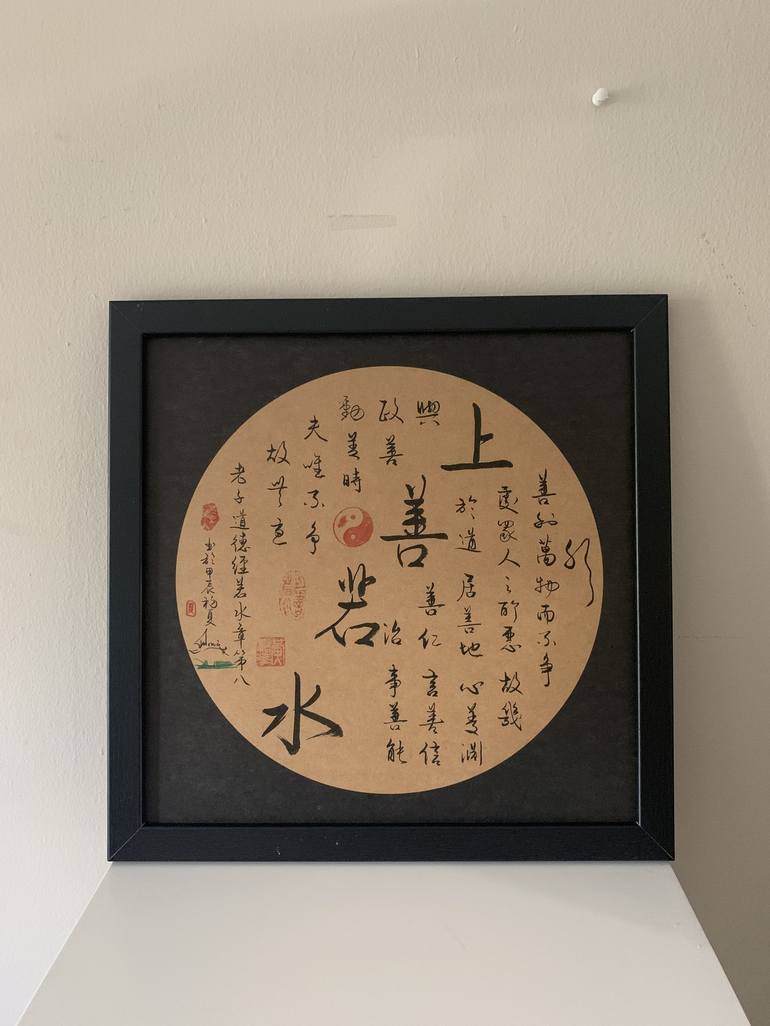 上善若水
水
善利萬物而不争
處衆人之所惡故幾
於道居善地心善淵
與善仁言善信
政善治事善能
動善時
夫唯不争
故無尤
老子道德經若水章第八
書於甲辰初夏